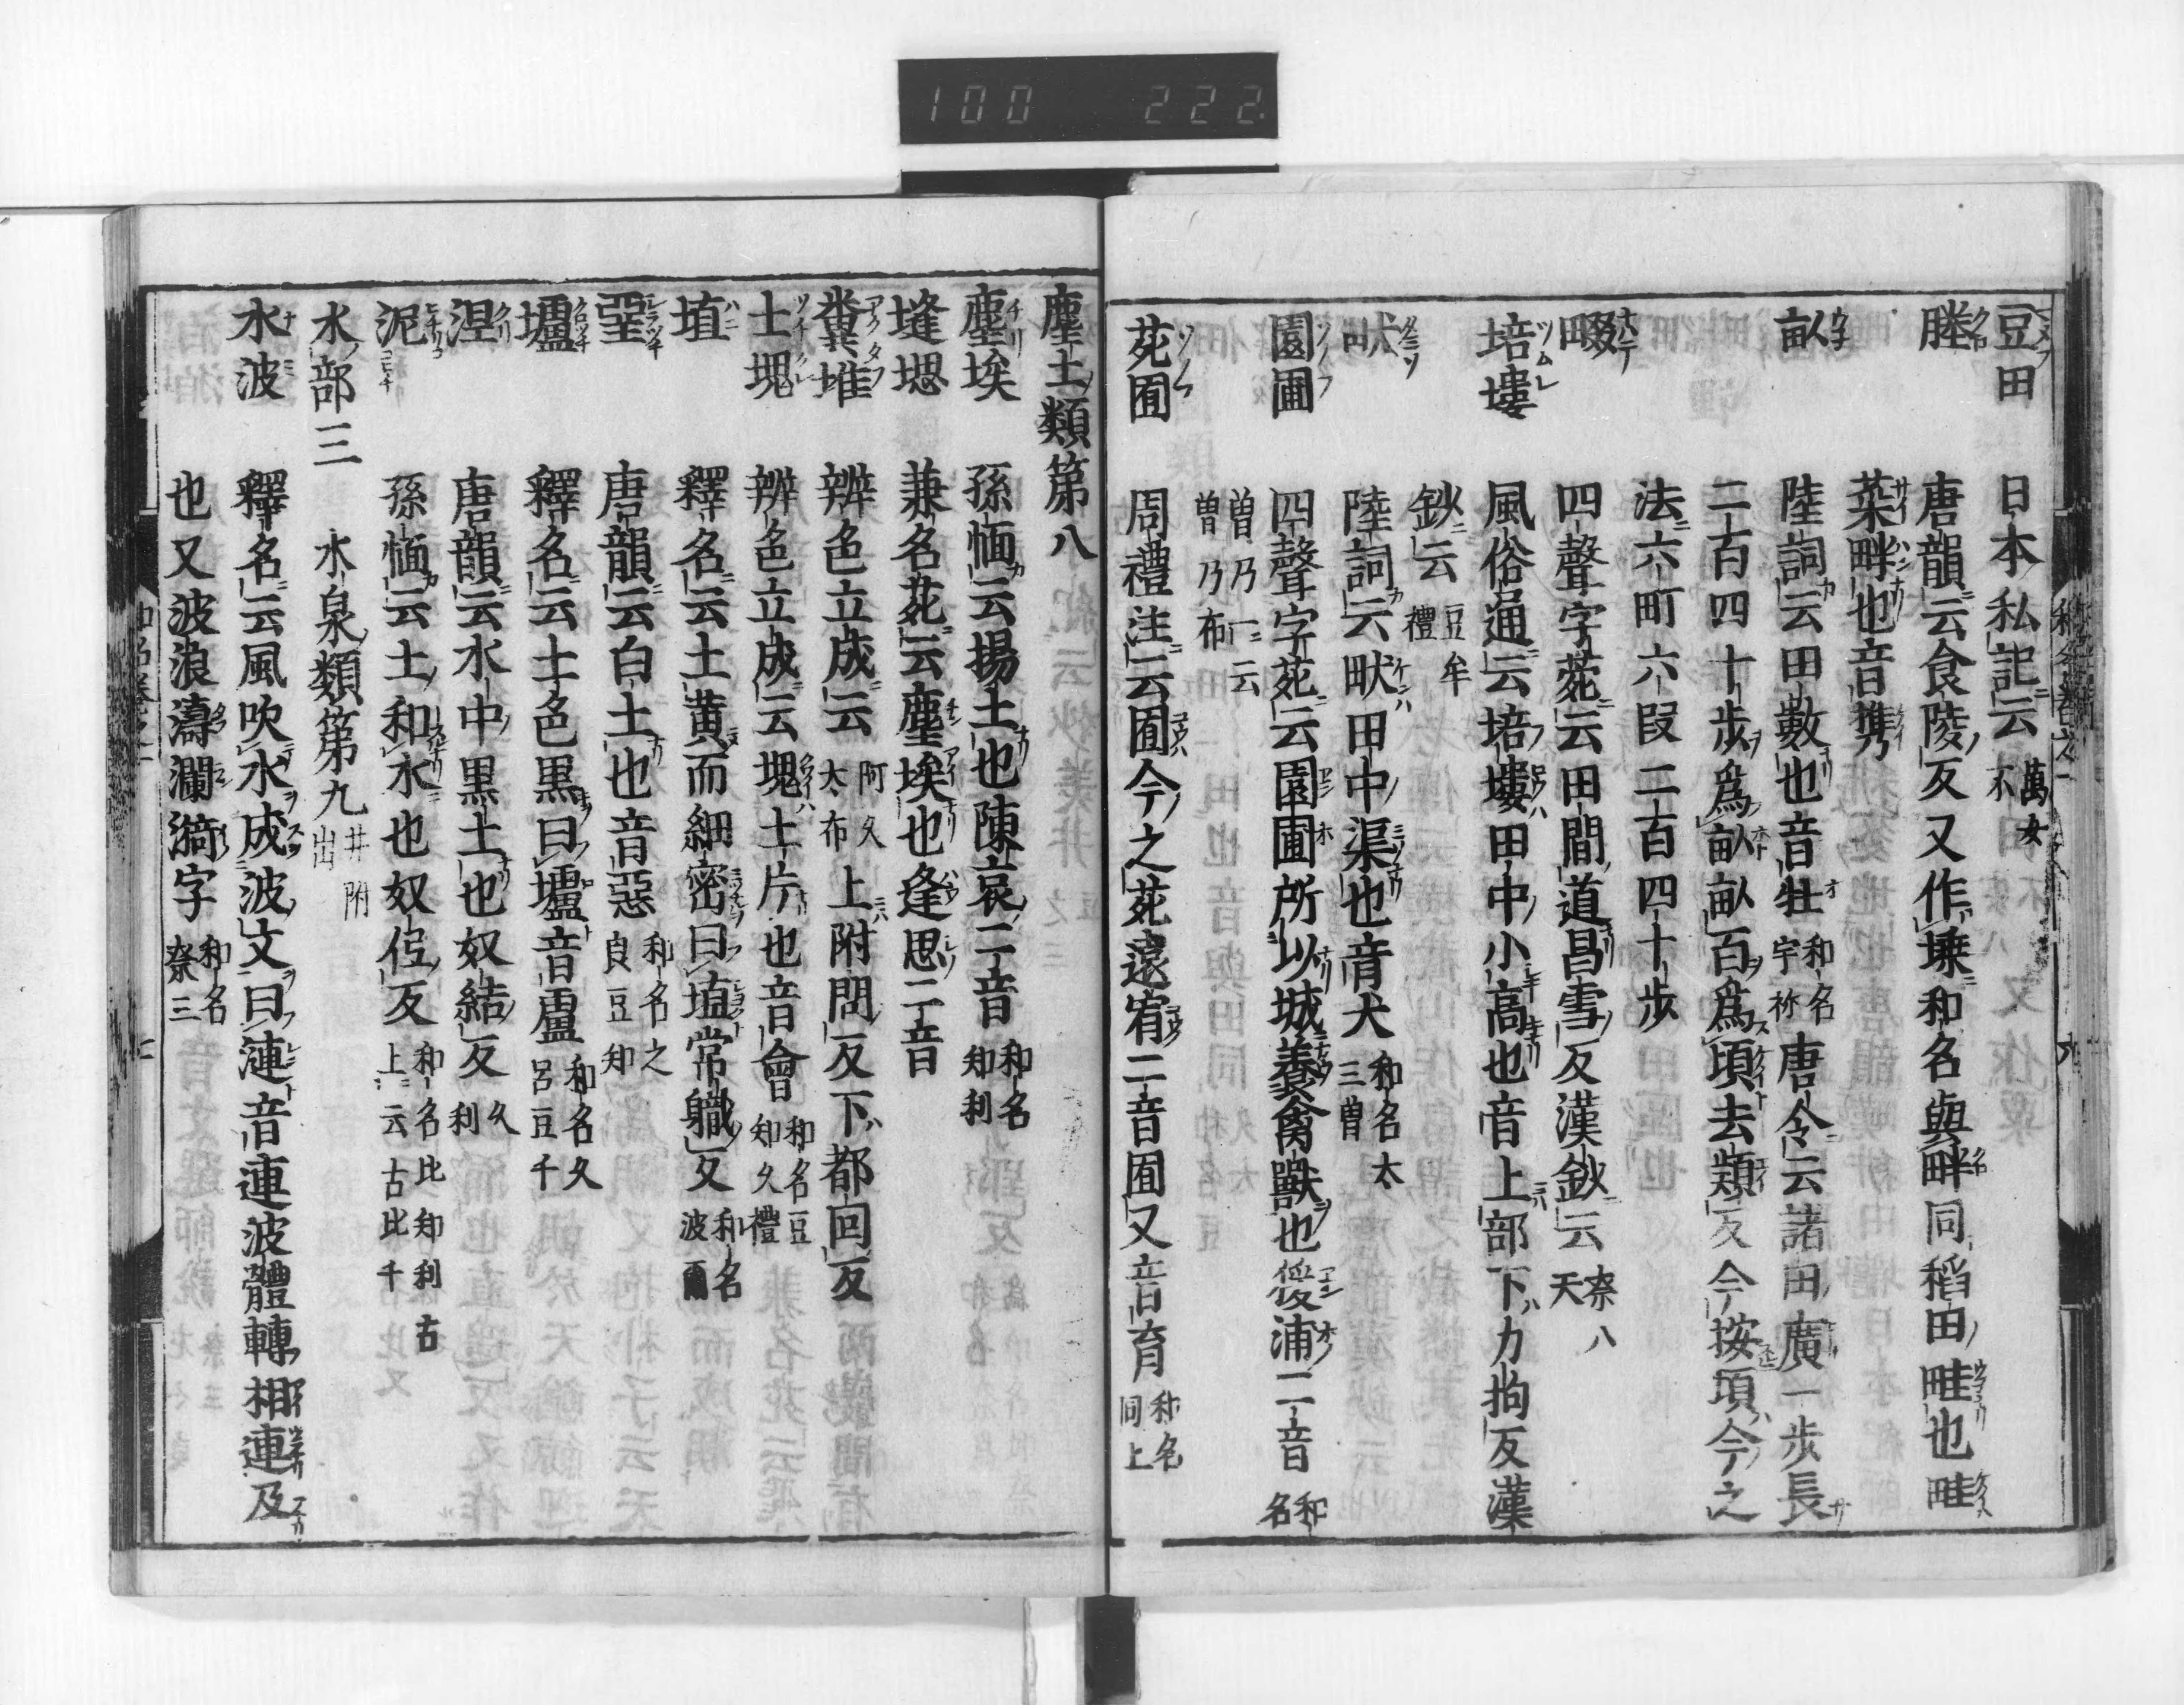 100 222.
豆田 日本私記云 萬女不
塍 唐韻云食陵反又作塖和名與畔同稻田畦也畦
菜畔也音携
畝 陸詞云田數也音牡 和名宇祢 唐令云諸田廣一步長
二百四十步爲畝畝百爲頃去頴反今按頃今之
法六町六段二百四十步
畷 四聲字苑云田間道昌雪反漢鈔云 奈八天
培塿 風俗通云培塿田中小高也音上部下力拘反漢
鈔云 豆牟禮
畎 陸詞云畎田中渠也音犬 和名太三曽
園圃 四聲字苑云園圃所以城養禽獸也援浦二音 和名
曽乃 一云曽乃布
苑囿 周禮注云囿今之苑遠宥二音囿又音育 和名同上
塵土類第八
塵埃 孫愐云揚土也陳哀二音 和名知利
㙜㙠 兼名苑云塵埃也逢思二音
糞堆 辨色立成云 阿久太布 上附問反下都回反
土塊 辨色立成云塊土片也音會 和名豆知久禮
埴 釋名云土黄而細密曰埴常職反 和名波爾
堊 唐韻云白土也音惡 和名之良豆知
壚 釋名云土色黒曰壚音盧 和名久呂豆千
涅 唐韻云水中黒土也奴結反 久利
泥 孫愐云土和水也奴低反 和名比知利古 上云古比千
水部三 水泉類第九 井附出
水波 釋名云風吹水成波文曰漣音連波體轉相連及
也又波浪濤瀾漪字 和名奈三